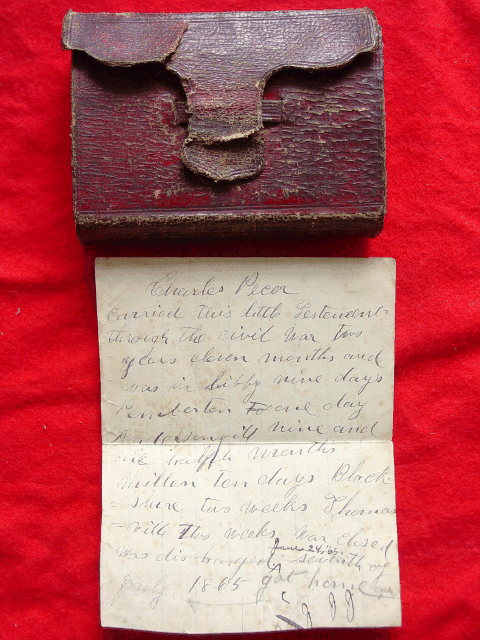 Charles Pecor
carried this little Testendent
through the civil war two
years eleven months and
was in Libby nine days
Pemberton one day
Andersonvill nine and
one half months
millen ten days Black-
-shire two weeks Thomas
-vill two weeks war closed
was discharged June 24, '65 seventh of
July 1865 got home